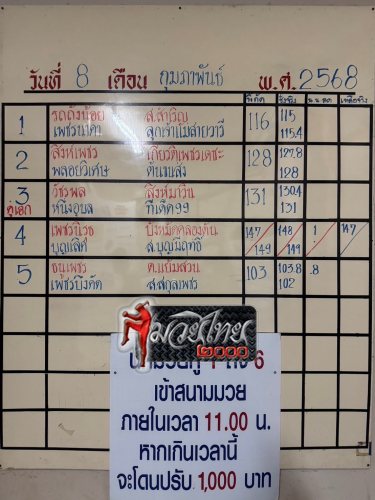 วันที่ 8 เดือน กุมภาพันธ์ พ.ศ. 2568
พิกัด ชั่งจริง น.น.ลด เหลือจริง
1 รถถังน้อย ส.สำเริญ 116 115
เพชรนาคา ลูกเจ้าแม่สายวารี 115.4
2 สิงห์เพชร เกียรติเพชรเดชะ 128 127.8
พลอยวิเศษ 128
3 วัชรพล สิงห์มาวิน 131 130.4
คู่เอก หนึ่งอุบล ทีเด็ด99 131
4 เพชรนิวธ บังหมัดคลองตัน 147 148 1 147
บุญเลิศ ส.บุญมีฤทธิ์ 149 149
5 ธนูเพชร ต.แย้มสวน 103 103.8 .8
เพชรบึงคัด ส.สกุลเพชร 102
มวยไทย
2000
6
เข้าสนามมวย
ภายในเวลา 11.00 น.
หากเกินเวลานี้
จะโดนปรับ 1,000 บาท